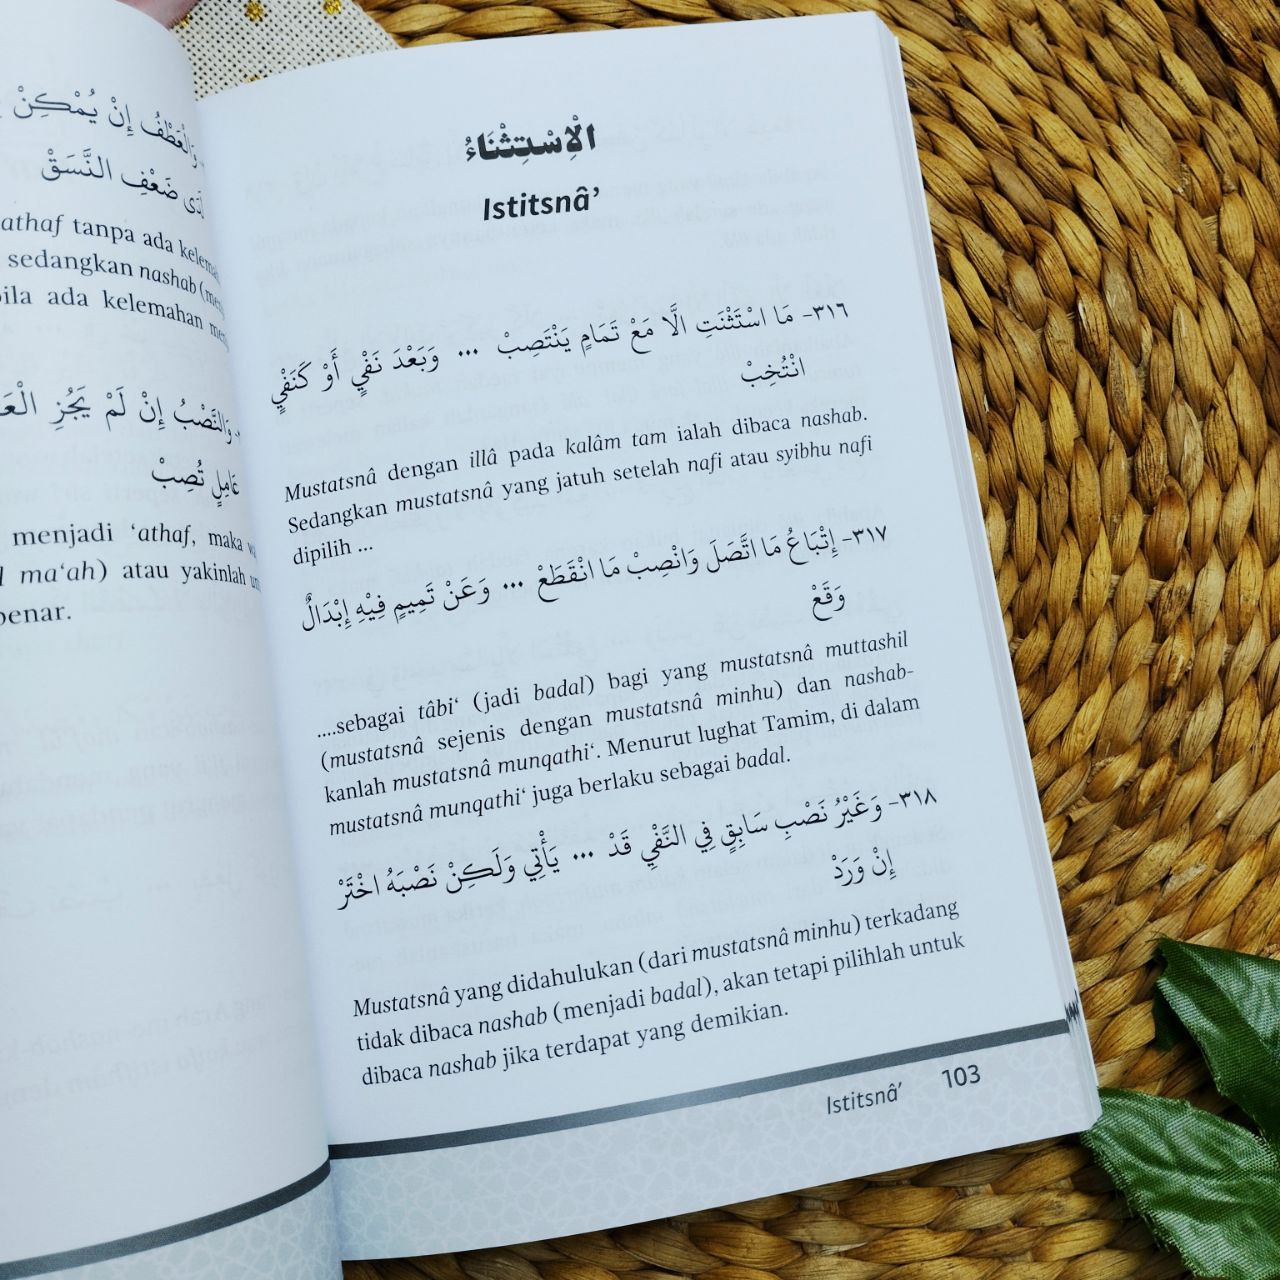 وَالْعَطْفُ إِنْ يُمْكِنْ
لَدَى ضَعْفِ النَّسَقْ
athaf tanpa ada
sedangkan nashab
ada kelemahan
وَالنَّصْبُ إِنْ لَمْ يَجُزِ
عَامِلٍ تُصِبْ
menjadi ‘athaf, maka
ma‘ah) atau yakinlah
benar.
الْاِسْتِثْنَاءُ
Istitsnâ’
٣١٦- مَا اسْتَثْنَتِ الَّا مَعْ تَمَامٍ يَنْتَصِبْ ... وَبَعْدَ نَفْيٍ أَوْ كَنَفْيٍ
انْتُخِبْ
Mustatsnâ dengan illâ pada kalâm tam ialah dibaca nashab.
Sedangkan mustatsnâ yang jatuh setelah nafi atau syibhu nafi
dipilih ...
٣١٧- إِتْبَاعُ مَا اتَّصَلَ وَانْصِبْ مَا انْقَطَعْ ... وَعَنْ تَمِيمٍ فِيْهِ إِبْدَالٌ
وَقَعْ
....sebagai tâbi‘ (jadi badal) bagi yang mustatsnâ muttashil
(mustatsnâ sejenis dengan mustatsnâ minhu) dan nashab-
kanlah mustatsnâ munqathi‘. Menurut lughat Tamim, di dalam
mustatsnâ munqathi‘ juga berlaku sebagai badal.
٣١٨- وَغَيْرُ نَصْبِ سَابِقٍ فِي النَّفْيِ قَدْ ... يَأْتِي وَلَكِنْ نَصْبَهُ اخْتَرْ
إِنْ وَرَدْ
Mustatsnâ yang didahulukan (dari mustatsnâ minhu) terkadang
tidak dibaca nashab (menjadi badal), akan tetapi pilihlah untuk
dibaca nashab jika terdapat yang demikian.
Istitsnâ’ 103